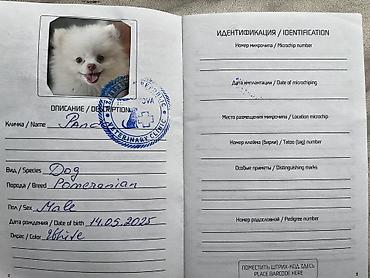 ОПИСАНИЕ / DESCRIPTION
Кличка / Name
VETERINARY CLINIC
Вид / Species Dog
Порода / Breed Pomeranian
Пол / Sex Male
Дата рождения / Date of birth 14.05.2025
Окрас / Color White
ИДЕНТИФИКАЦИЯ / IDENTIFICATION
Номер микрочипа / Microchip number
Дата имплантации / Date of microchiping
Место размещения микрочипа / Location microchip
Номер клейма (бирки) / Tatoo (tag) number
Особые приметы / Distinguishing marks
Номер родословной / Pedigree number
ПОМЕСТИТЬ ШТРИХ-КОД ЗДЕСЬ
PLACE BARCODE HERE